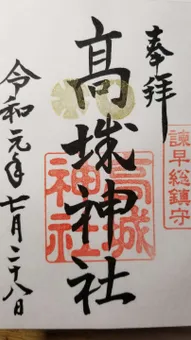 奉拝
諫早総鎮守
高城神社
高城神社
令和元年七月二十八日